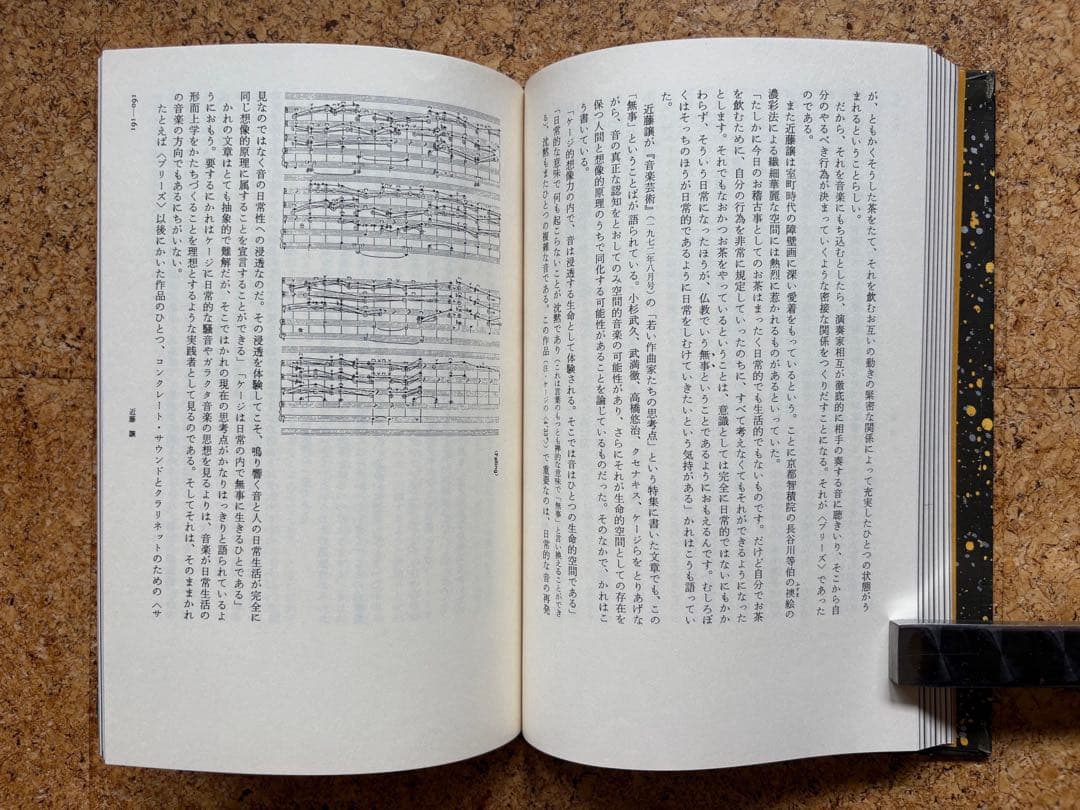 が、ともかくそうした茶をたて、それを飲むお互いの動きの緊密な関係によって充実したひとつの状態がう
まれるということらしい。
だから、それを音楽にもち込むとしたら、演奏家相互が徹底的に相手の奏する音に聴きいり、そこから自
分のやるべき行為が決まっていくような密接な関係をつくりだすことになる。それが〈ブリーズ〉であった
のである。
また近藤譲は室町時代の障壁画に深い愛着をもっているという。ことに京都智積院の長谷川等伯の襖絵の
濃彩法による繊細華麗な空間には熱烈に惹かれるものがあるといっていた。
「たしかに今日のお稽古事としてのお茶はまったく日常的でも生活的でもないものです。だけど自分でお茶
を飲むために、自分の行為を非常に規定していったのちに、すべて考えなくてもそれができるようになった
とします。それでもなおかつお茶をやっているということは、意識としては完全に日常的ではないにもかか
わらず、そういう日常になったほうが、仏教でいう無事ということであるようにおもえるんです。むしろぼ
くはそっちのほうが日常的であるように日常をしむけていきたいという気持がある」かれはこうも語ってい
た。
近藤譲が『音楽芸術』(一九七二年八月号)の「若い作曲家たちの思考点」という特集に書いた文章でも、この
「無事」ということばが語られている。小杉武久、武満徹、高橋悠治、クセナキス、ケージらをとりあげな
がら、音の真正な認知をとおしてのみ空間的音楽の可能性があり、さらにそれが生命的空間としての存在を
保つ人間と想像的原理のうちで同化する可能性があることを論じているものだった。そのなかで、かれはこ
う書いている。
「ケージ的想像力の内で、音は浸透する生命として体験される。そこでは音はひとつの生命的空間である」
「日常的な意味で何も起こらないことが沈黙であり(これは言葉のもっとも禅的な意味で「無事」と言い換えることができ
る)、沈黙もまたひとつの複雑な音である。この作品(注・ケージの《4′33″》)で重要なのは、日常的な音の再発
見なのではなく音の日常性への浸透なのだ。その浸透を体験してこそ、鳴り響く音と人の日常生活が完全に
同じ想像的原理に属することを宣言することができる」「ケージは日常の内で無事に生きるひとである」
かれの文章はとても抽象的で難解だが、そこではかれの現在の思考点がかなりはっきりと語られているよ
うにおもう。要するにかれはケージに日常的な騒音やガラクタ音楽の思想を見るよりは、音楽が日常生活の
形而上学をかたちづくることを理想とするような実践者として見るのである。そしてそれは、そのままかれ
の音楽の方向でもあるにちがいない。
たとえば〈ブリーズ〉以後にかいた作品のひとつ、コンクレート・サウンドとクラリネットのための〈サ
160—161
近藤 譲